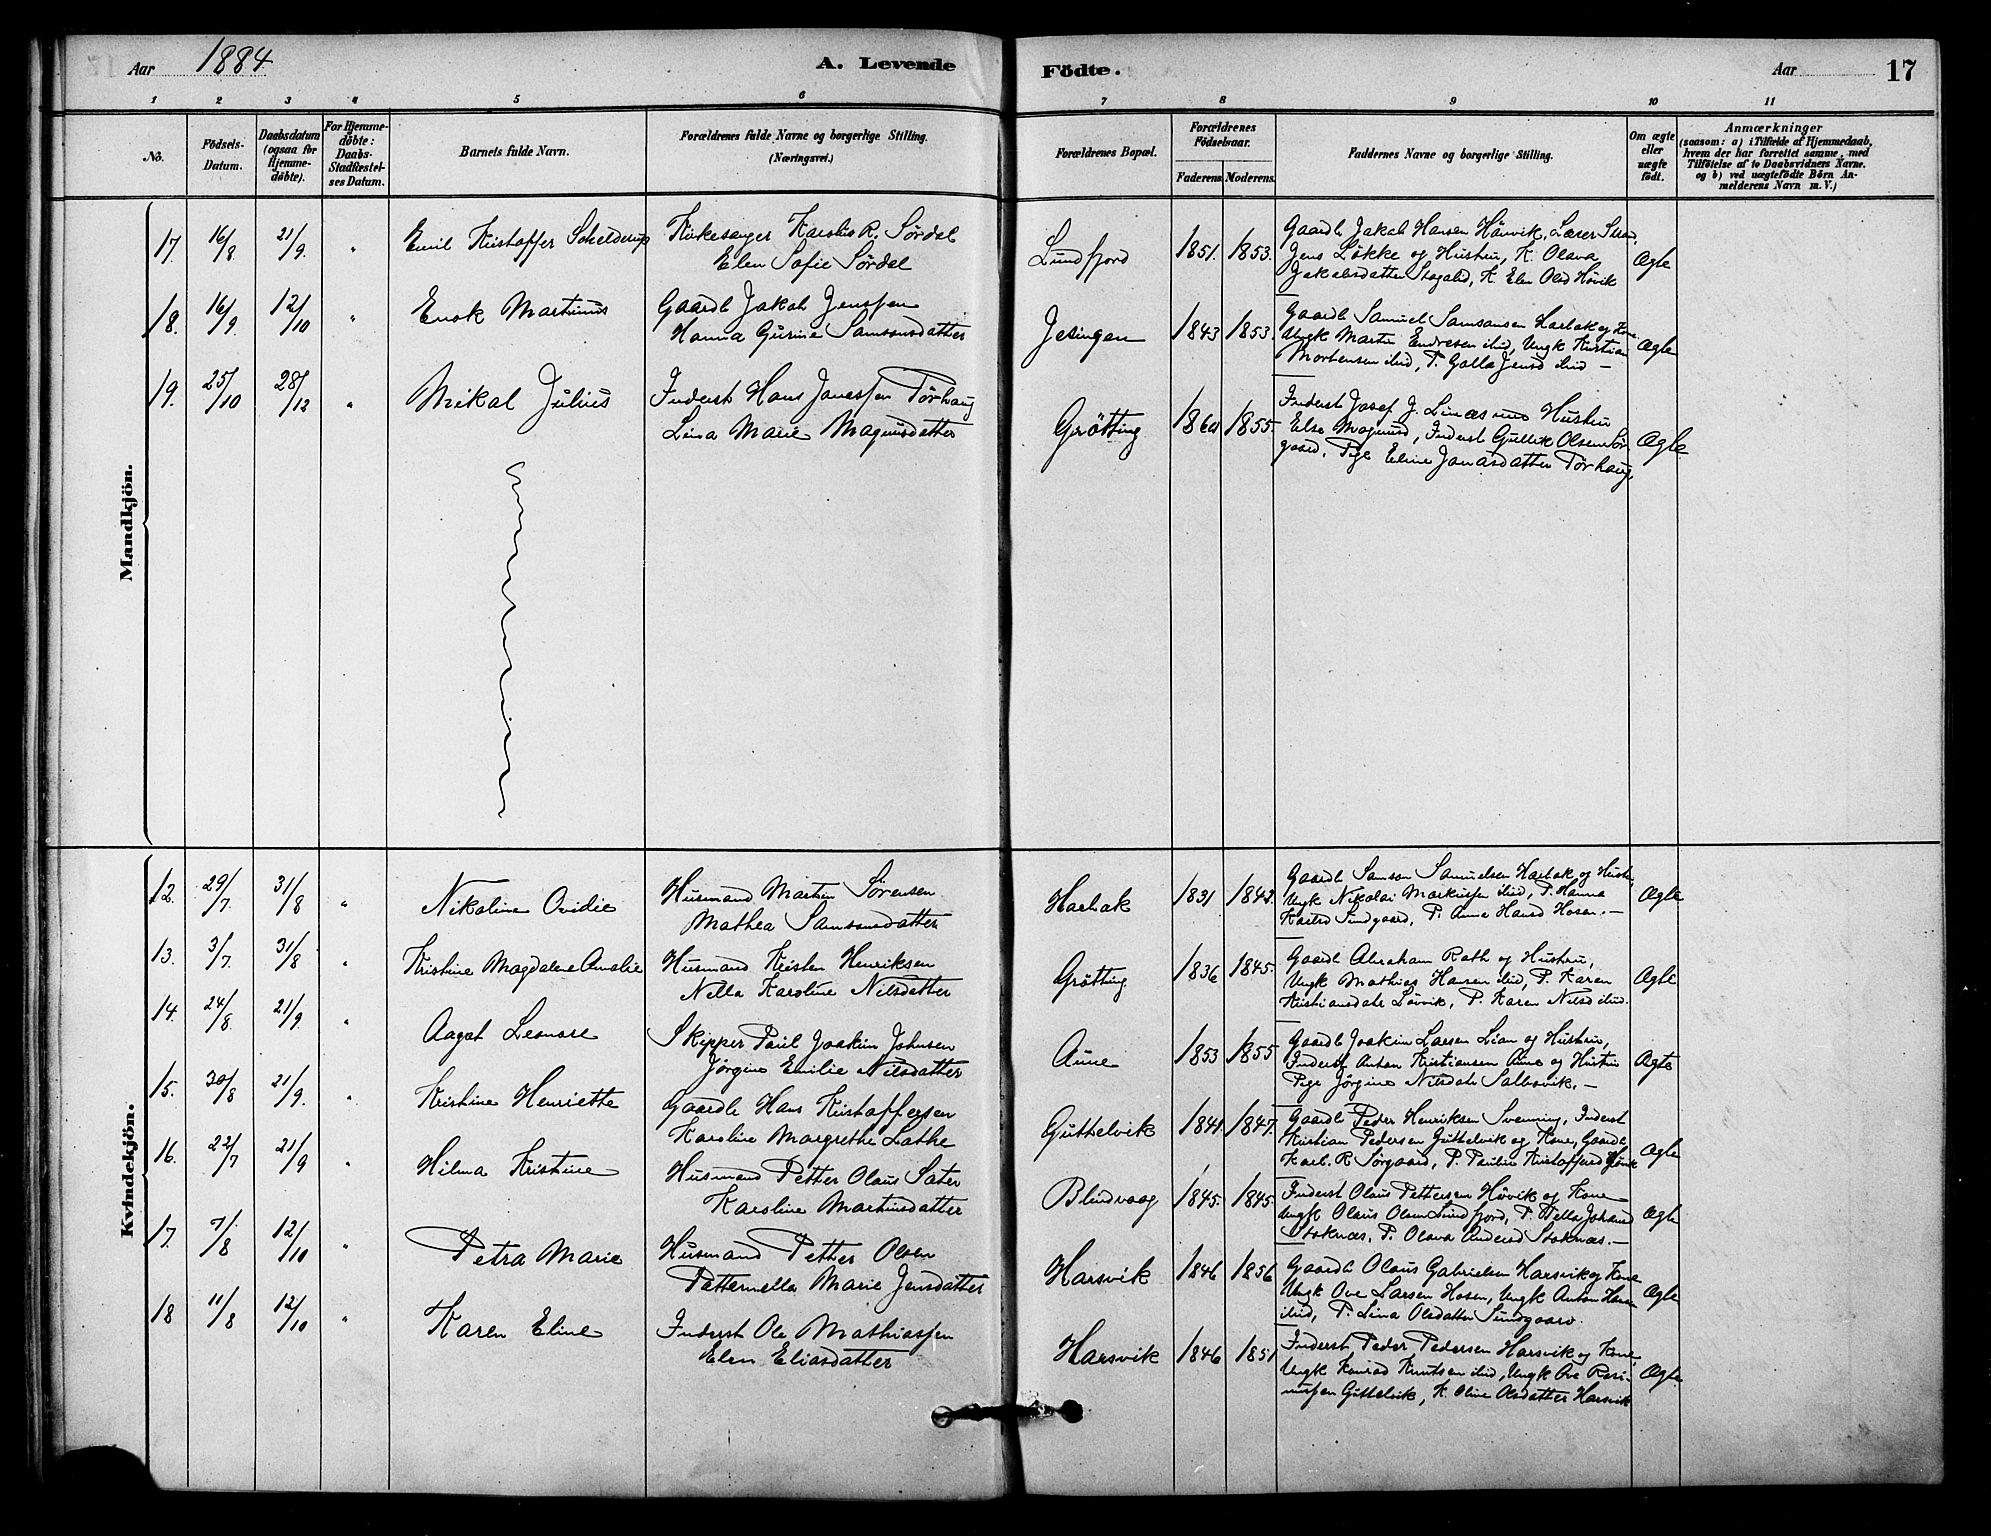 Aar 1884 A. Levende Födte. Aar 17
1 2 3 4 5 6 7 8 9 10 11
No. Födsels-Datum. Daabsdatum (ogsaa for Hjemme-döbte). For Hjemme-döbte: Daabs-Stadfæstel-ses Datum. Barnets fulde Navn. Forældrenes fulde Navne og borgerlige Stilling. (Næringsvei.) Forældrenes Bopæl. Forældrenes Födselsaar. Faderens Moderens. Faddernes Navne og borgerlige Stilling. Om ægte eller uægte födt. Anmærkninger (saasom: a) i Tilfælde af Hjemmedaab, hvem der har forrettet samme, med Tilföielse af to Daabsvidners Navne. og b) ved uægtefödte Börn An-melderens Navn m. V.)
Mandkjön.
17. 16/8 21/9. " Emil Kristoffer Schelderup Kirkesanger Karolius R. Sørdal
Elen Sofie Sørdal
Lundfjord 1851. 1853. Gaardb Jakob Hansen Hövik, Lærer Strøm,
Jens Løkke og Hustru, K. Olava
Jakobsdatter, K Elen Olsd Hövik
Ægte
18. 16/9. 12/10 " Enok Martinus Gaardb Jakob Jenssen
Hanna Gurine Samsonsdatter
Jøsingen 1843 1853. Gaardb Samuel Samsonsen Harbak og Kone
Ungk Martin Endresen ibid, Ungk Kristian
Mortensen ibid, P. Golla Jensd ibid –
Ægte
19. 25/10 28/12 " Mikal Julius Inderst Hans Jonassen Tørhaug
Lina Marie Magnusdatter
Grötting 1860 1855. Inderst Josef J. Linæs Hustru
Else Magnusd, Inderst Gullik Olsen Sør-
gaard, Pige Eline Jonasdatter Tørhaug,
Ægte.
Kvindekjön.
12. 29/7. 31/8 " Nikoline Ovidie Husmand Martin Sørensen
Mathea Samsonsdatter
Harbak 1831 1843. Gaardb Samson Samuelsen Harbak og Hustr.,
Ungk Nikolai Markussen ibid, P. Hanna
Sundgaard, P. Anna Hansd Hosen. –
Ægte
13. 3/7. 31/8 " Kristine Magdalene Amalie Husmand Kristen Henriksen
Nella Karoline Nilsdatter
Grötting 1836 1845. Gaardb Abraham Rath og Hustru,
Ungk Mathias Hansen ibid, P. Karen
Kristiansdatr Lövvik, P. Karen Nilsd ibid.
Ægte
14. 24/8. 21/9. " Aagot Leonore Skipper Paul Joakim Johnsen
Jørgine Emilie Nilsdatter
Aune 1853 1855 Gaardb Joakim Larsen Lian og Hustru,
Inderst Anton Kristiansen Aune og Hustru
Pige Jørgine Nilsdatr Salbovik. –
Ægte
15. 30/8 21/9. " Kristine Henriette Gaardb Hans Kristoffersen
Karoline Margrethe Lathe
Guttelvik 1841. 1847. Gaardb Peder Henriksen Svenning, Inderst
Kristian Pedersen Guttelvik og Kone, Gaardb
Karl. R Sørgaard, P. Pauline Kristoffersd Hövik
Ægte
16. 22/7 21/9 " Hilma Kristine Husmand Petter Olaus Sater
Karoline Martinsdatter
Blindvaag 1845. 1845. Inderst Olaus Pettersen Hövik og Kone
Ungk Olaus Olsen Sundfjord, P. Pella Johansd
Stoknæs, P. Olava Andersd Stoknæs. –
Ægte
17. 7/8 12/10 " Petra Marie Husmand Petter Olsen
Petternella Marie Jensdatter
Harsvik 1846 1856 Gaardb Olaus Gabrielsen Harsvik og Kone
Ungk Ove Larsen Hosen, Ungk Anton Hansen
ibid, P. Lina Olsdatter Sundgaard.
Ægte
18 11/8 12/10 " Karen Eline Inderst Ole Mathiassen
Elen Eliasdatter
Harsvik 1846 1851 Inderst Peder Pedersen Harsvik og Kone,
Ungk Konrad Knutsen ibid, Ungk Ove Rasi-
mussen Guttelvik, K. Oline Olsdatter Harsvik
Ægte.